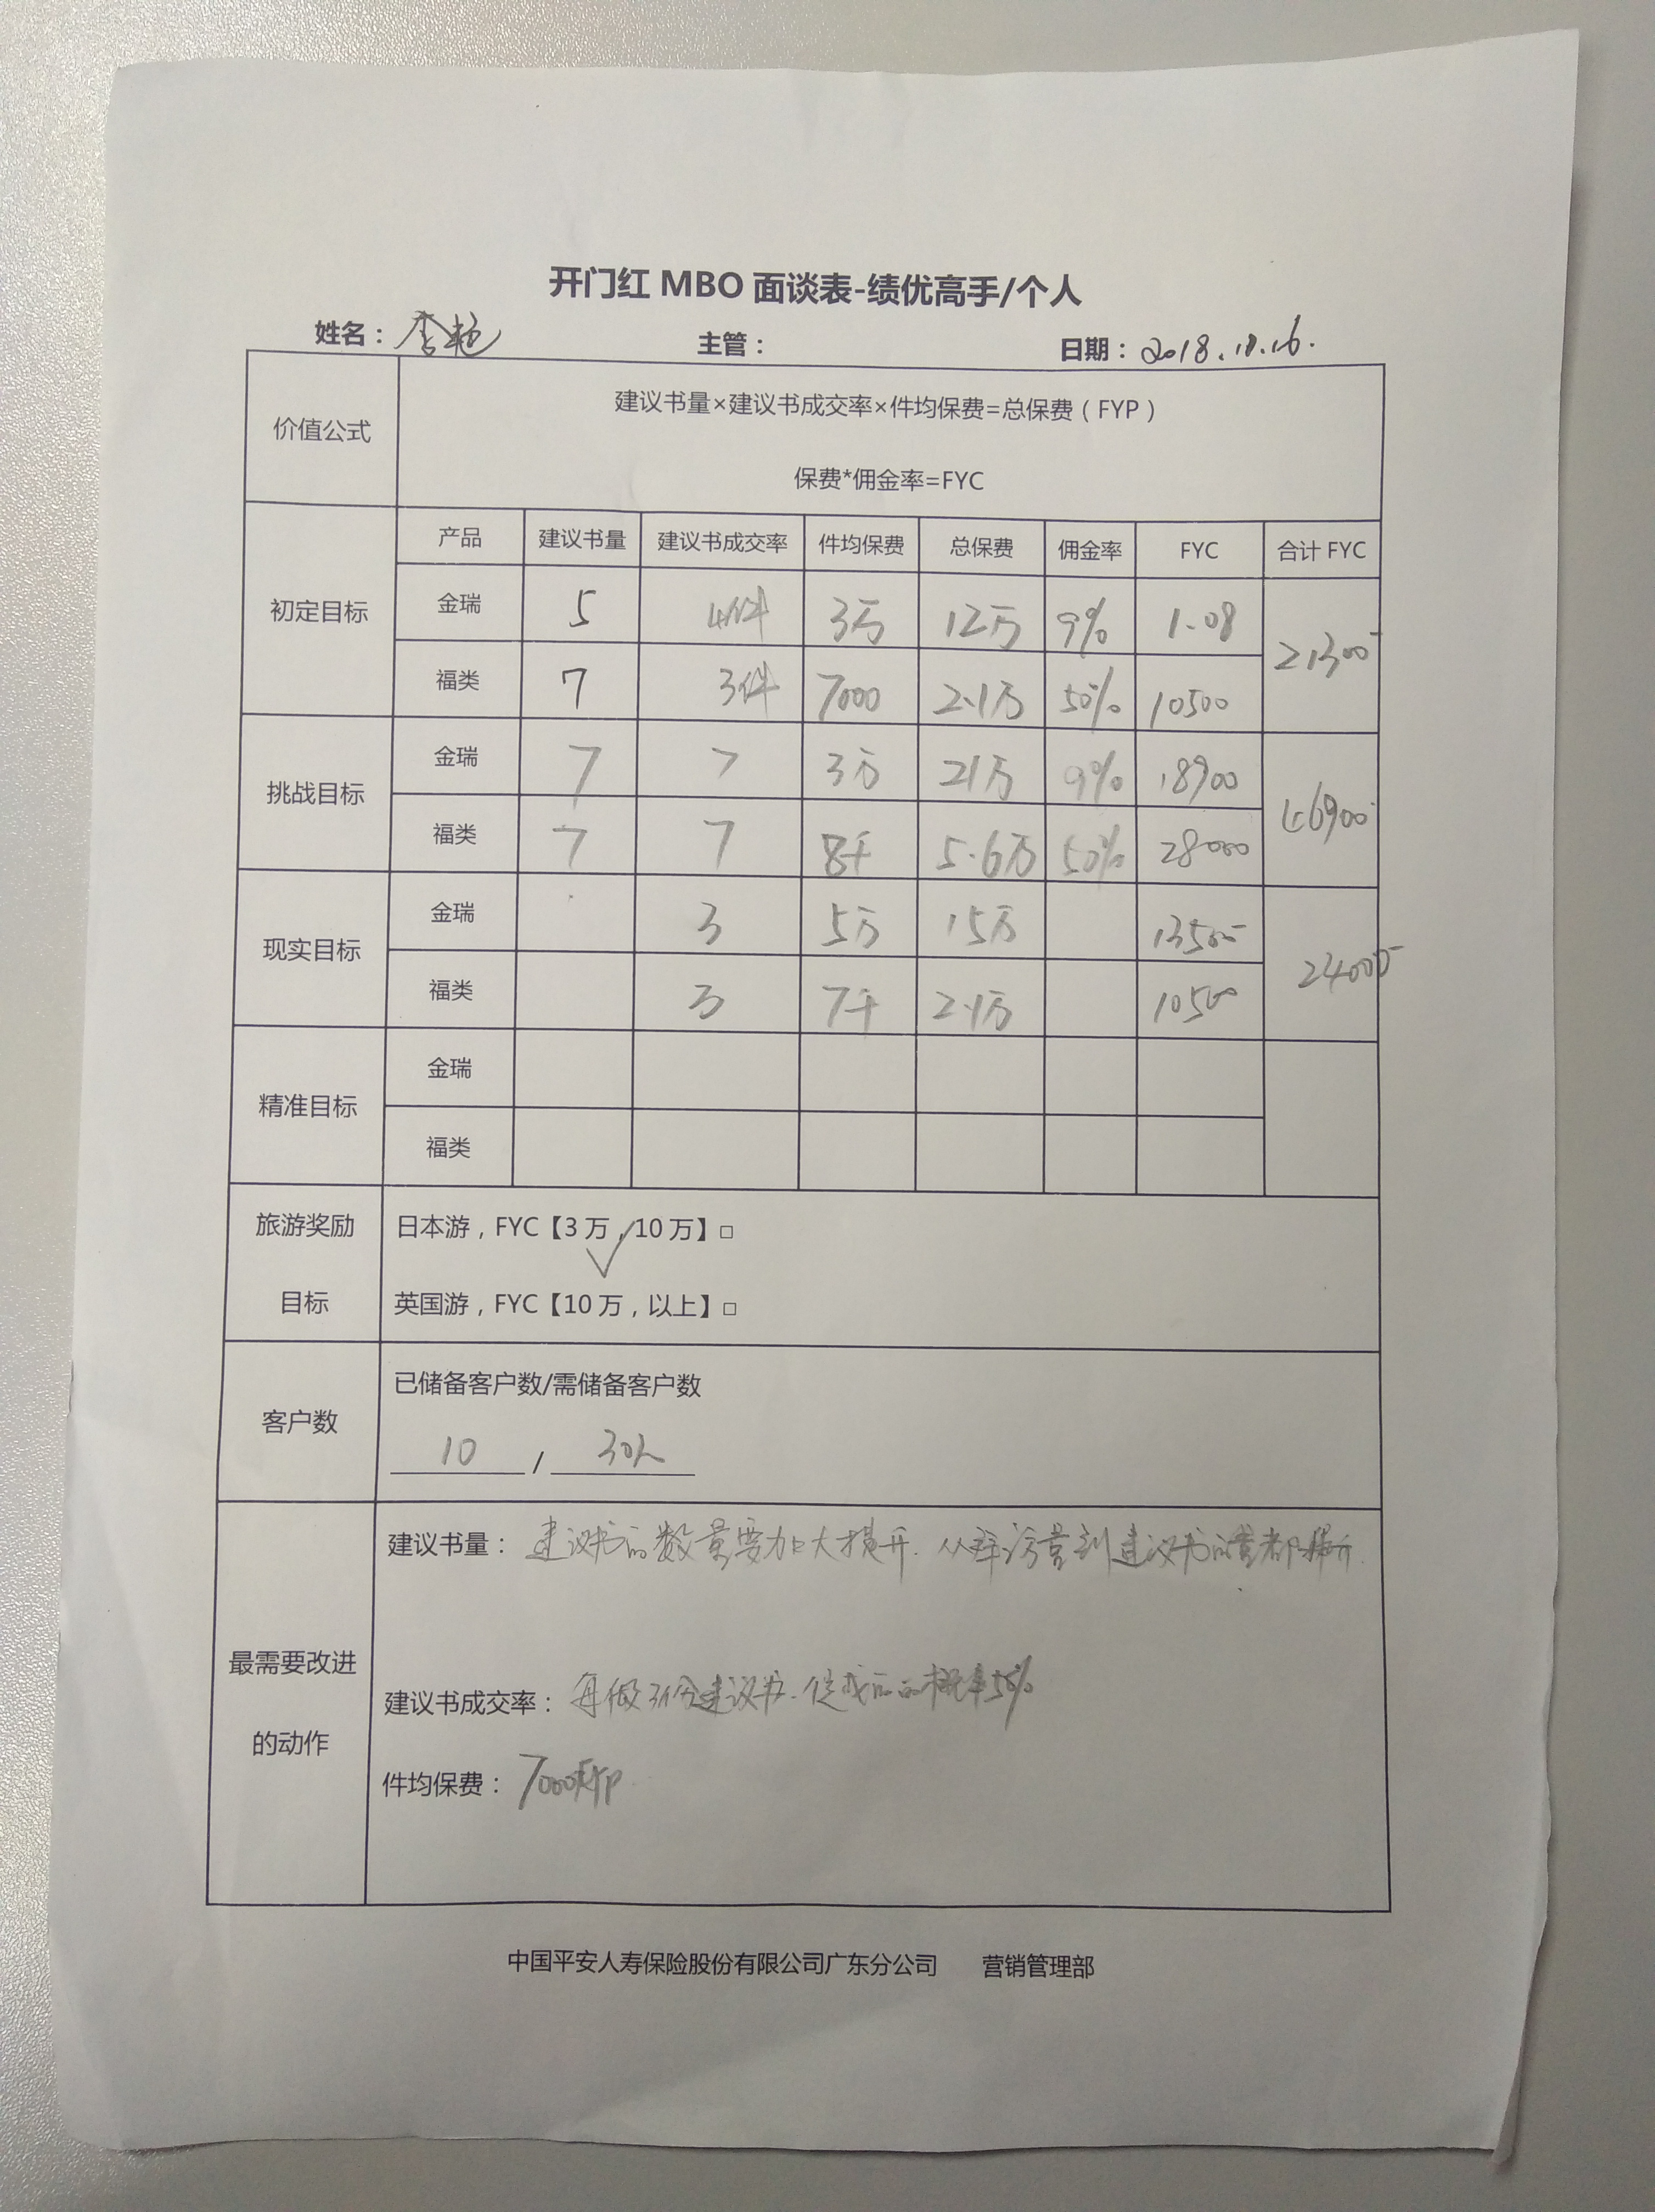 开门红 MBO 面谈表-绩优高手/个人
姓名：李艳 主管： 日期：2018.11.16.
价值公式
建议书量×建议书成交率×件均保费=总保费（FYP）
保费*佣金率=FYC
产品 建议书量 建议书成交率 件均保费 总保费 佣金率 FYC 合计 FYC
初定目标
金瑞 5 4件 3万 12万 9% 1.08
21300
福类 7 3件 7000 2.1万 50% 10500
挑战目标
金瑞 7 7 3万 21万 9% 18900
46900
福类 7 7 8千 5.6万 50% 28000
现实目标
金瑞 3 5万 15万 13500
24000
福类 3 7千 2.1万 10500
精准目标
金瑞
福类
旅游奖励
目标
日本游，FYC【3 万，10 万】□
√
英国游，FYC【10 万，以上】□
客户数
已储备客户数/需储备客户数
10 / 30人
最需要改进
的动作
建议书量：建议书的数量要加大提升. 从 量到建议书的量都提升.
建议书成交率：每做3份建议书. 促成 的概率50%
件均保费：7000FYP
中国平安人寿保险股份有限公司广东分公司 营销管理部